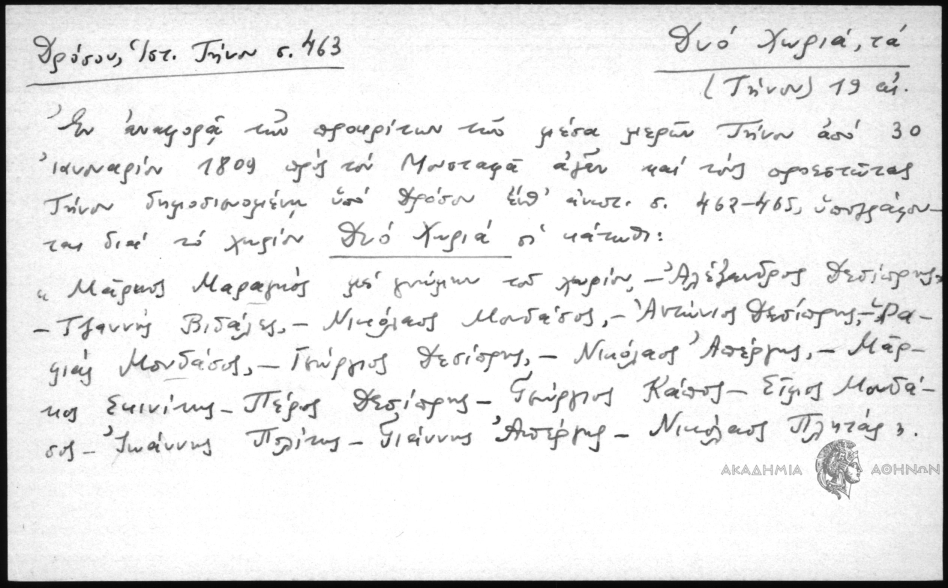 Δρόσου, Ἱστ. Τήνου σ. 463
Δυό Χωριά, τά
(Τήνου) 19 αἰ.
Ἐν ἀναφορᾷ τῶν προκρίτων τῶν μέσα μερῶν Τήνου ἀπό 30
Ἰανουαρίου 1809 πρός τόν Μουσταφᾶ ἀγᾶν καί τούς προεστῶτας
Τήνου δημοσιευομένῃ ὑπό Δρόσου ἔνθ' ἀνωτ. σ. 462-465, ὑπογράφον-
ται διά τό χωρίον Δυό Χωριά οἱ κάτωθι:
« Μάρκος Μαραγκός μέ γνώμην τοῦ χωρίου, - Ἀλέξανδρος Δεσίπρης,
- Τζαννῆς Βιδάλες, - Νικόλαος Μονδάσος, - Ἀντώνιος Δεσίπρης, -
Μονδάσος, - Γεώργιος Δεσίπρης, - Νικόλαος Ἀπέργης, - Μάρ-
κος Σκινίτης - Πέρος Δεσίπρης - Γεώργιος Κάπος - Μονδά-
σος - Ἰωάννης Πολίτης - Γιάννης Ἀπέργης - Νικόλαος Πλητάς ».
ΑΚΑΔΗΜΙΑ ΑΘΗΝΩΝ